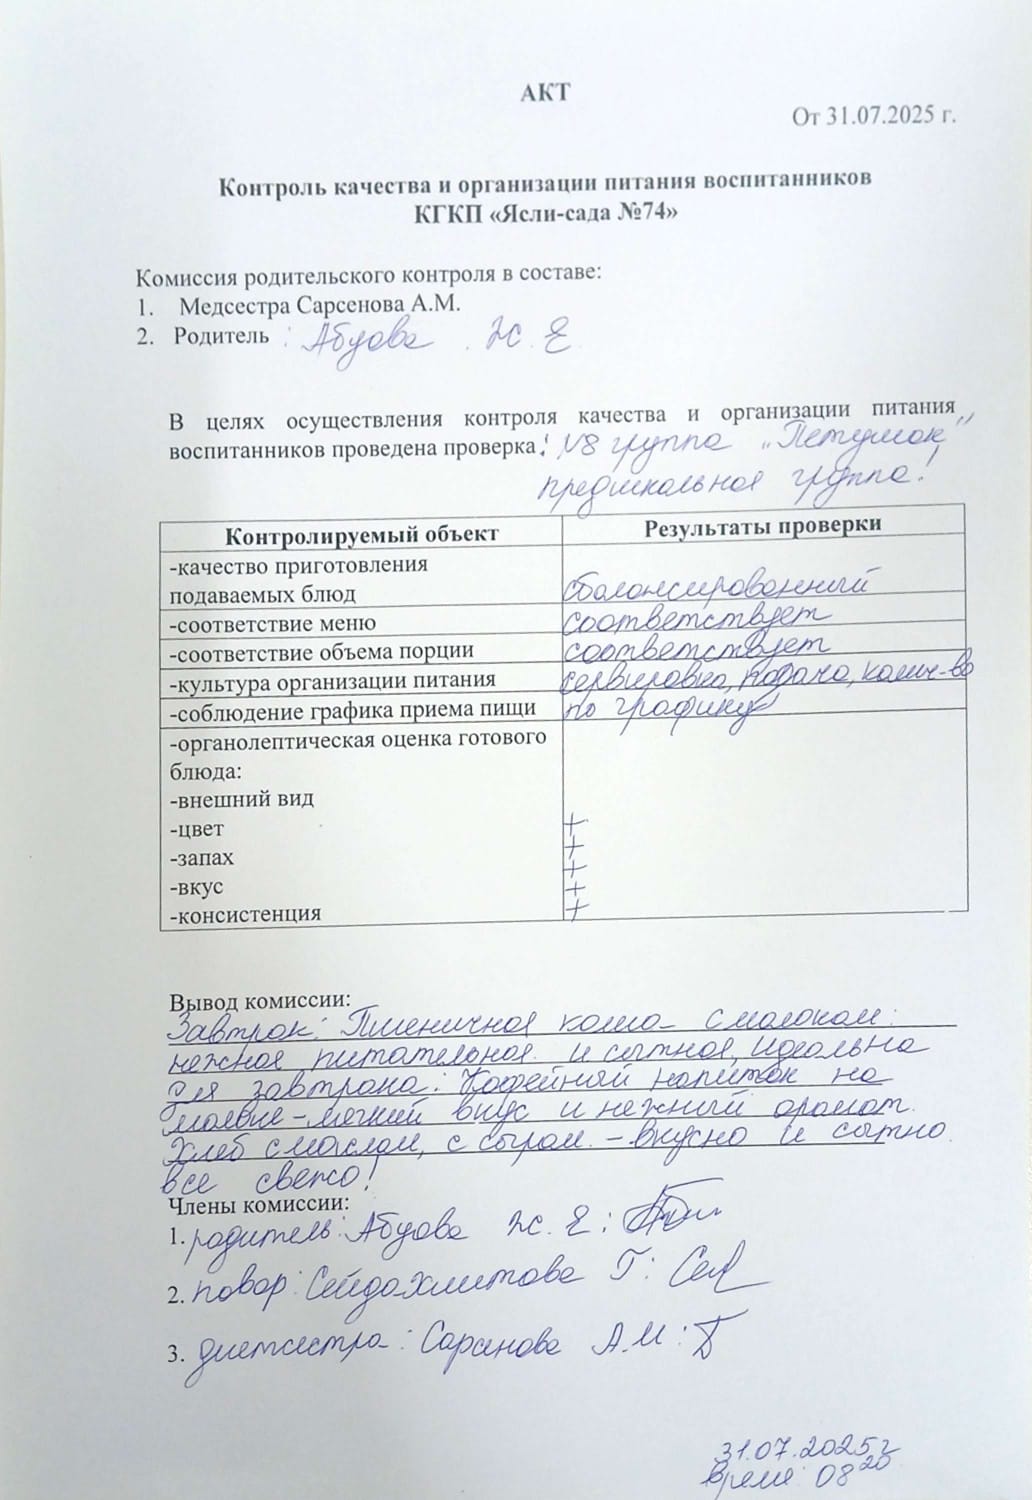 АКТ
От 31.07.2025 г.
Контроль качества и организации питания воспитанников
КГКП «Ясли-сада №74»
Комиссия родительского контроля в составе:
1. Медсестра Сарсенова А.М.
2. Родитель : Абуова Ж. Е
В целях осуществления контроля качества и организации питания
воспитанников проведена проверка: №8 группа „Петушок”
предшкольная группа!
Контролируемый объект Результаты проверки
-качество приготовления
подаваемых блюд сбалансированный
-соответствие меню соответствует
-соответствие объема порции соответствует
-культура организации питания сервировка, подача, колич-во
-соблюдение графика приема пищи по графику
-органолептическая оценка готового
блюда:
-внешний вид +
-цвет +
-запах +
-вкус +
-консистенция +
Вывод комиссии:
Завтрак: Пшеничная каша с молоком:
нежная питательная и сытная, идеальна
для завтрака: Кофейный напиток на
молоке - мягкий вкус и нежный аромат.
Хлеб с маслом, с сыром - вкусно и сытно.
все свежо!
Члены комиссии:
1. родитель: Абуова Ж. Е :
2. повар: Сейдахметова Г:
3. диетсестра: Сарсенова А.М :
31.07.2025 г
время: 08 20